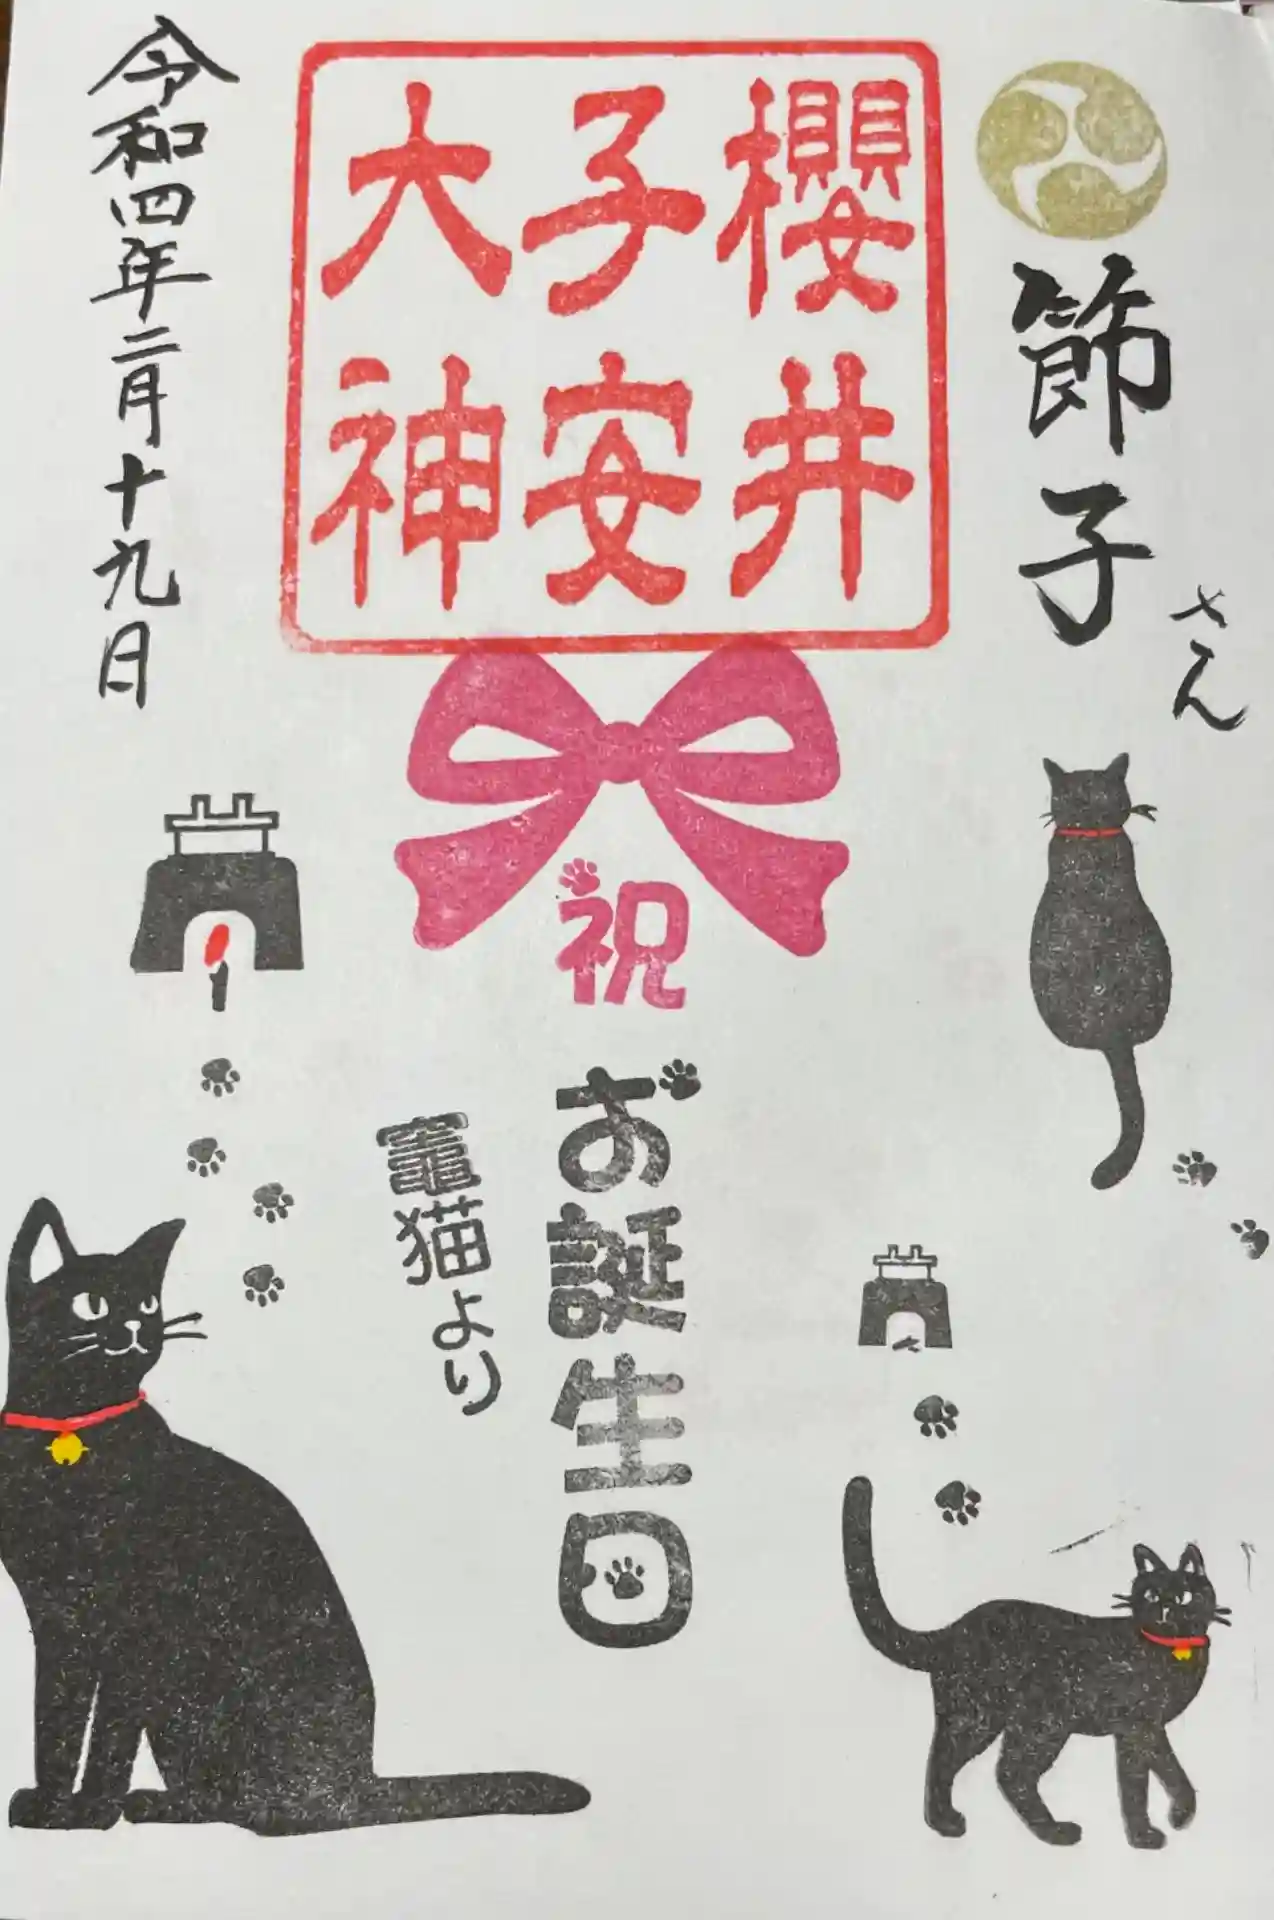 節子さん
櫻井
子安
大神
祝
お誕生日
竈猫より
令和四年二月十九日